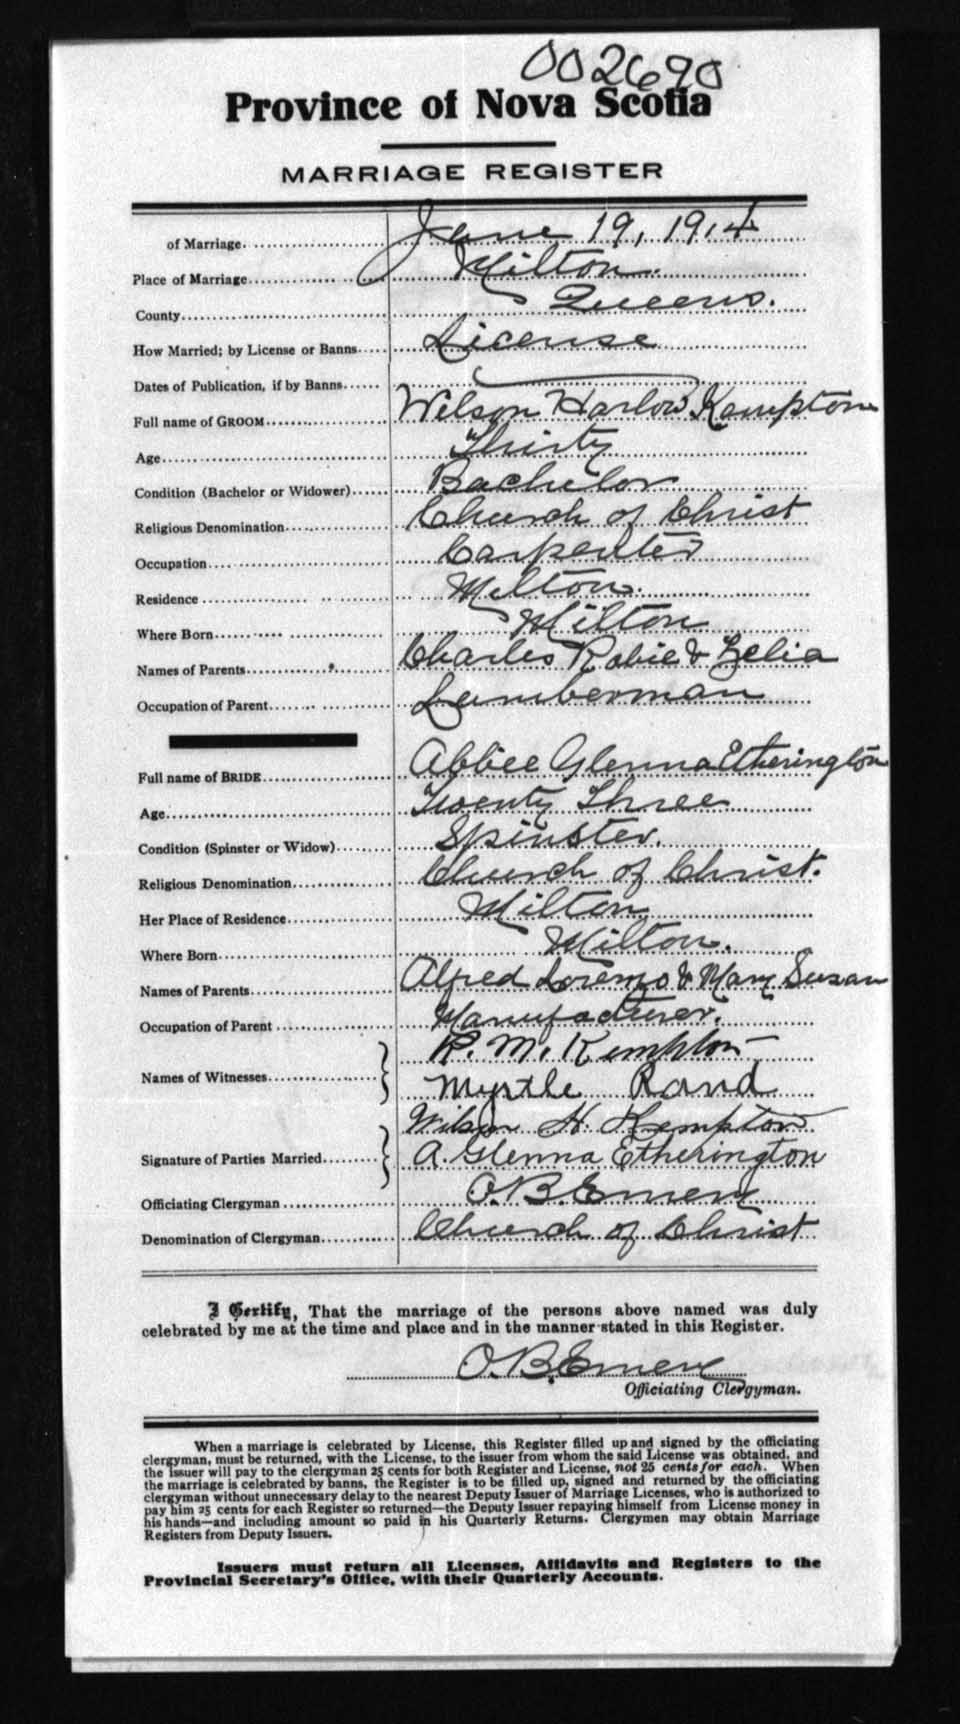 002690
Province of Nova Scotia
MARRIAGE REGISTER
of Marriage June 19, 1914
Place of Marriage Milton.
County Queens.
How Married; by License or Banns License
Dates of Publication, if by Banns
Full name of GROOM Wilson Harlow Kempton
Age Thirty
Condition (Bachelor or Widower) Bachelor
Religious Denomination Church of Christ
Occupation Carpenter
Residence Milton.
Where Born Milton
Names of Parents Charles Robie & Zelia
Occupation of Parent Lumberman
Full name of BRIDE Abbie Glenna Etherington
Age Twenty Three
Condition (Spinster or Widow) Spinster.
Religious Denomination Church of Christ.
Her Place of Residence Milton
Where Born Milton.
Names of Parents Alfred Lorenzo & Mary Susan
Occupation of Parent Manufacturer.
R. M. Kempton
Names of Witnesses
Myrtle Rand
Wilson H. Kempton
Signature of Parties Married A. Glenna Etherington
Officiating Clergyman O. B. Emery
Denomination of Clergyman Church of Christ
I Certify, That the marriage of the persons above named was duly
celebrated by me at the time and place and in the manner stated in this Register.
O. B. Emery
Officiating Clergyman.
When a marriage is celebrated by License, this Register filled up and signed by the officiating
clergyman, must be returned, with the License, to the issuer from whom the said License was obtained, and
the issuer will pay to the clergyman 25 cents for both Register and License, not 25 cents for each. When
the marriage is celebrated by banns, the Register is to be filled up, signed and returned by the officiating
clergyman without unnecessary delay to the nearest Deputy Issuer of Marriage Licenses, who is authorized to
pay him 25 cents for each Register so returned—the Deputy Issuer repaying himself from License money in
his hands—and including amount so paid in his Quarterly Returns. Clergymen may obtain Marriage
Registers from Deputy Issuers.
Issuers must return all Licenses, Affidavits and Registers to the
Provincial Secretary's Office, with their Quarterly Accounts.